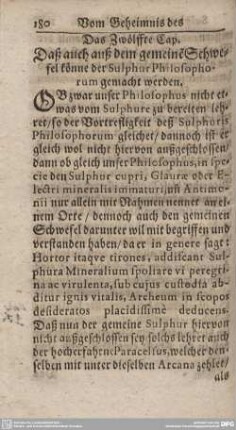 180 Vom Geheimnis des
Das Zwölffte Cap.
Daß auch auß dem gemeinē Schwe-
fel könne der Sulphur Philosopho-
rum gemacht werden.
OBzwar unser Philosophus nicht et-
was vom Sulphure zu bereiten leh-
ret/so der Vortrefligkeit deß Sulphuris
Philosophorum gleichet/dannoch ist er
gleich wol nicht hiervon außgeschlossen/
dann ob gleich unser Philosophus, in spe-
cie den Sulphur cupri, Glauræ oder E-
lectri mineralis immaturi, uñ Antimo-
nii nur allein mit Nahmen nennet an ei-
nem Orte/dennoch auch den gemeinen
Schwefel darunter wil mit begriffen und
verstanden haben/da er in genere sagt:
Hortor itaqve tirones, addiscant Sul-
phura Mineralium spoliare vi peregri-
na ac virulenta, sub cujus custodia ab-
ditur ignis vitalis, Archeum in scopos
desideratos placidissimè deducens.
Daß nun der gemeine Sulphur hiervon
nicht außgeschlossen sey solchs lehret auch
der hocherfahrne Paracelsus, welcher den-
selben mit unter dieselben Arcana zehlet/
als